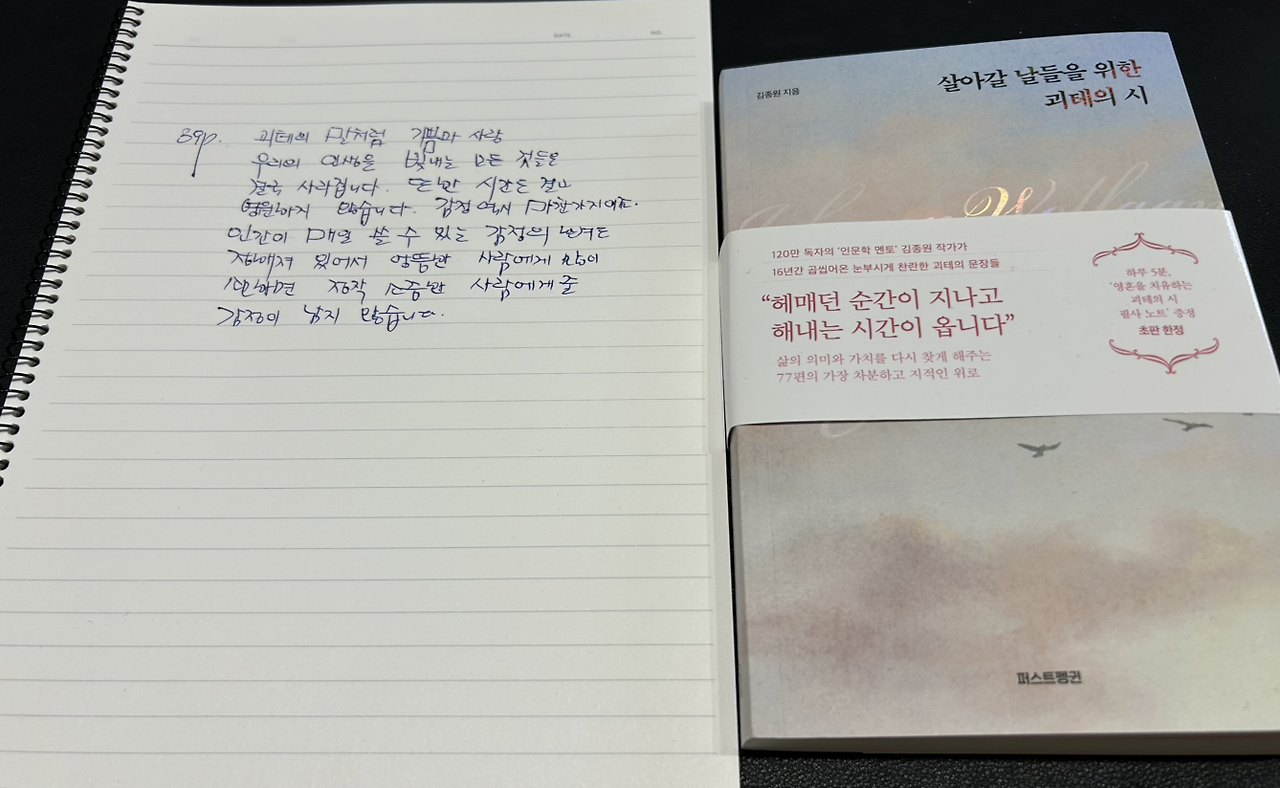 DATE NO.
39p. 괴테의 말처럼 기쁨과 사랑
우리의 인생을 빛내는 모든 것들은
결국 사라집니다. 또한 시간은 결코
영원하지 않습니다. 감정 역시 마찬가지이죠.
인간이 매일 쓸 수 있는 감정의 난이도
정해져 있어서 엉뚱한 사람에게 많이
정작 소중한 사람에게 줄
감정이 남지 않습니다.
김종원 지음
살아갈 날들을 위한
괴테의 시
120만 독자의 '인문학 멘토' 김종원 작가가
16년간 곱씹어온 눈부시게 찬란한 괴테의 문장들
“헤매던 순간이 지나고
해내는 시간이 옵니다”
삶의 의미와 가치를 다시 찾게 해주는
77편의 가장 차분하고 지적인 위로
하루 5분,
'영혼을 치유하는
괴테의 시
필사 노트' 증정
초판 한정
퍼스트펭귄